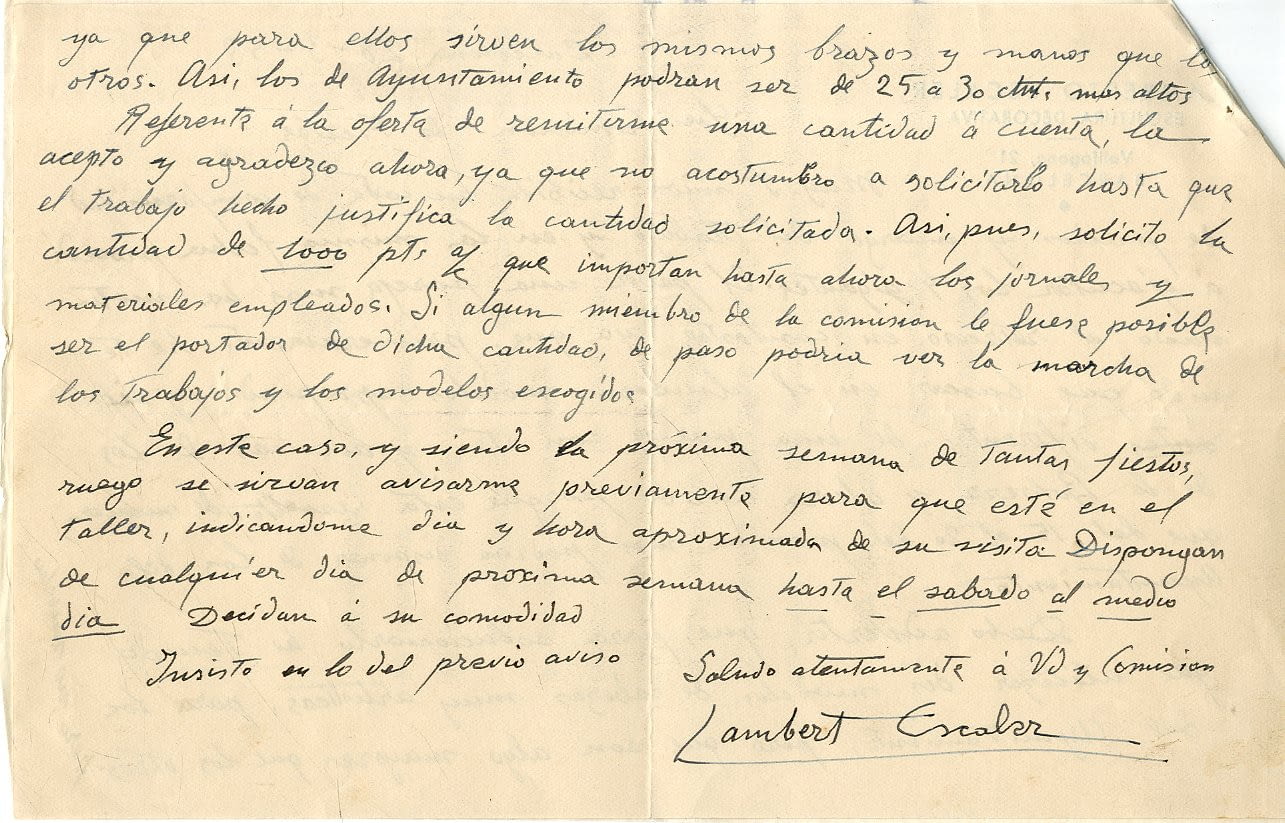 ya que para ellos sirven los mismos brazos y manos que los
otros. Asi, los de Ayuntamiento podran ser de 25 a 30 ctms mas altos
Referente á la oferta de remitirme una cantidad á cuenta, la
acepto y agradezco ahora, ya que no acostumbro a solicitarlo hasta que
el trabajo hecho justifica la cantidad solicitada. Asi, pues, solicito la
cantidad de 1000 pts que importan hasta ahora los jornales y
materiales empleados. Si algun miembro de la comision le fuese posible
ser el portador de dicha cantidad, de paso podria ver la marcha de
los trabajos y los modelos escogidos
En este caso, y siendo la próxima semana de tantas fiestas,
ruego se sirvan avisarme previamente para que esté en el
taller, indicandome dia y hora aproximada de su visita Dispongan
de cualquier dia de proxima semana hasta el sabado al medio
dia Decidan á su comodidad
Insisto en lo del previo aviso
Saludo atentamente á Vd y Comision
Lambert Escaler